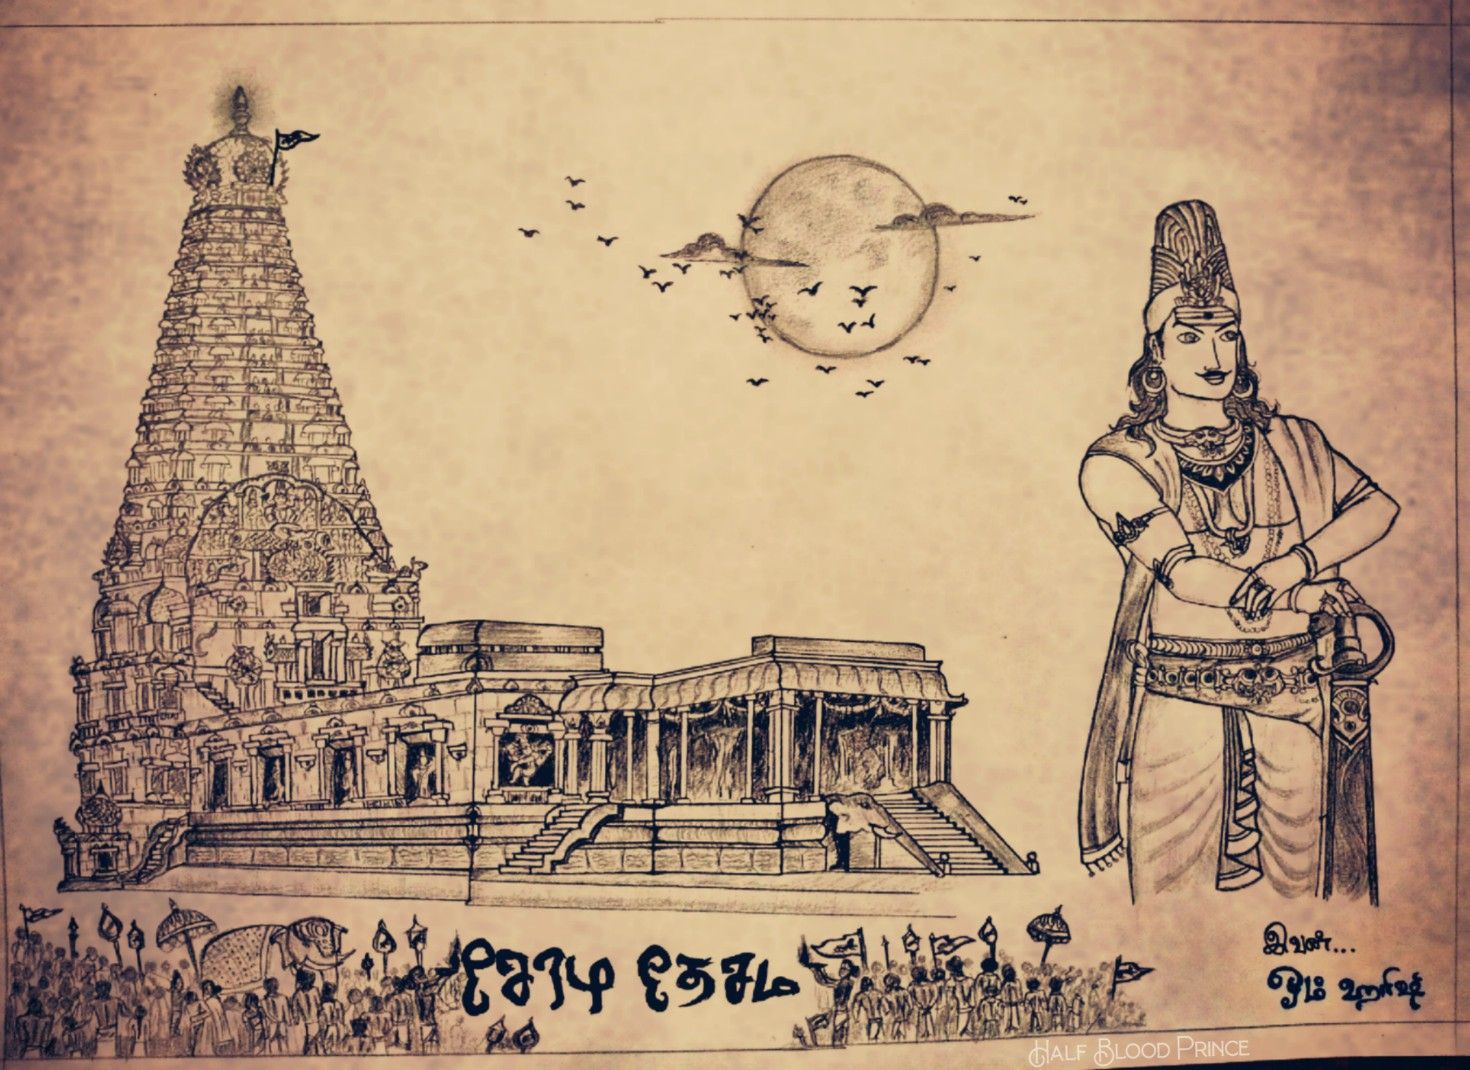 சோழ தேசம்
இவன்...
ஓம் ஹரிஷ்
HALF BLOOD PRINCE